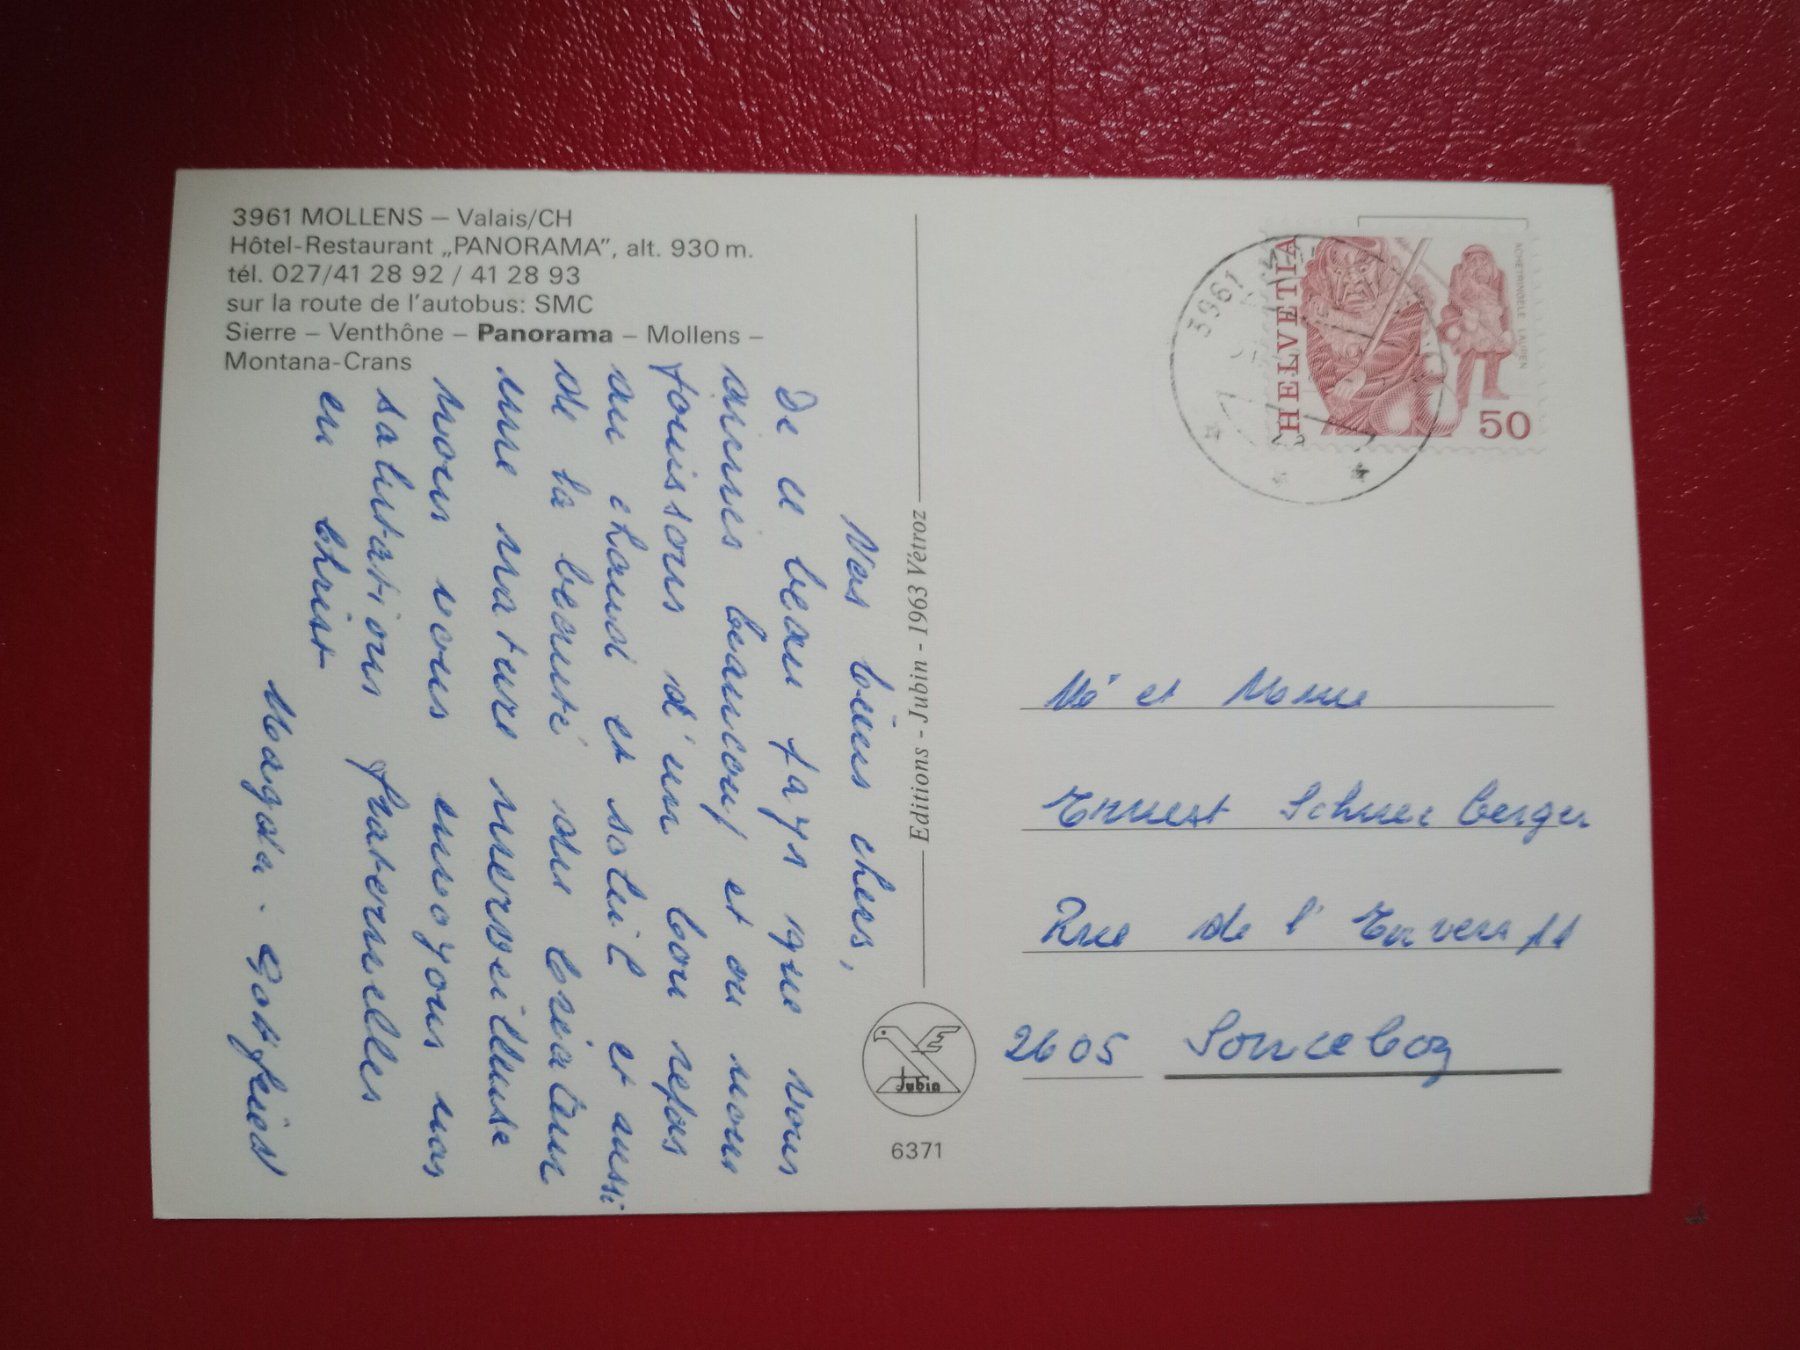 3961 MOLLENS – Valais/CH
Hôtel-Restaurant „PANORAMA”, alt. 930 m.
tél. 027/41 28 92 / 41 28 93
sur la route de l'autobus: SMC
Sierre – Venthône – Panorama – Mollens –
Montana-Crans
Nos biens chers,
De ce beau pays que vous
aimes beaucoup et ou nous
jouissons d'un bon repos
au chaud et soleil et aussi
de la beauté du Créateur
une nature merveilleuse
nous vous envoyons nos
salutations fraternelles
en Christ
Magda - Gottfried
Editions - Jubin - 1963 Vétroz
Jubin
6371
3961
HELVETIA
ACHETRINGELE LAUPEN
50
et
Ernest Schneeberger
Rue de l'Envers 11
2605 Sonceboz